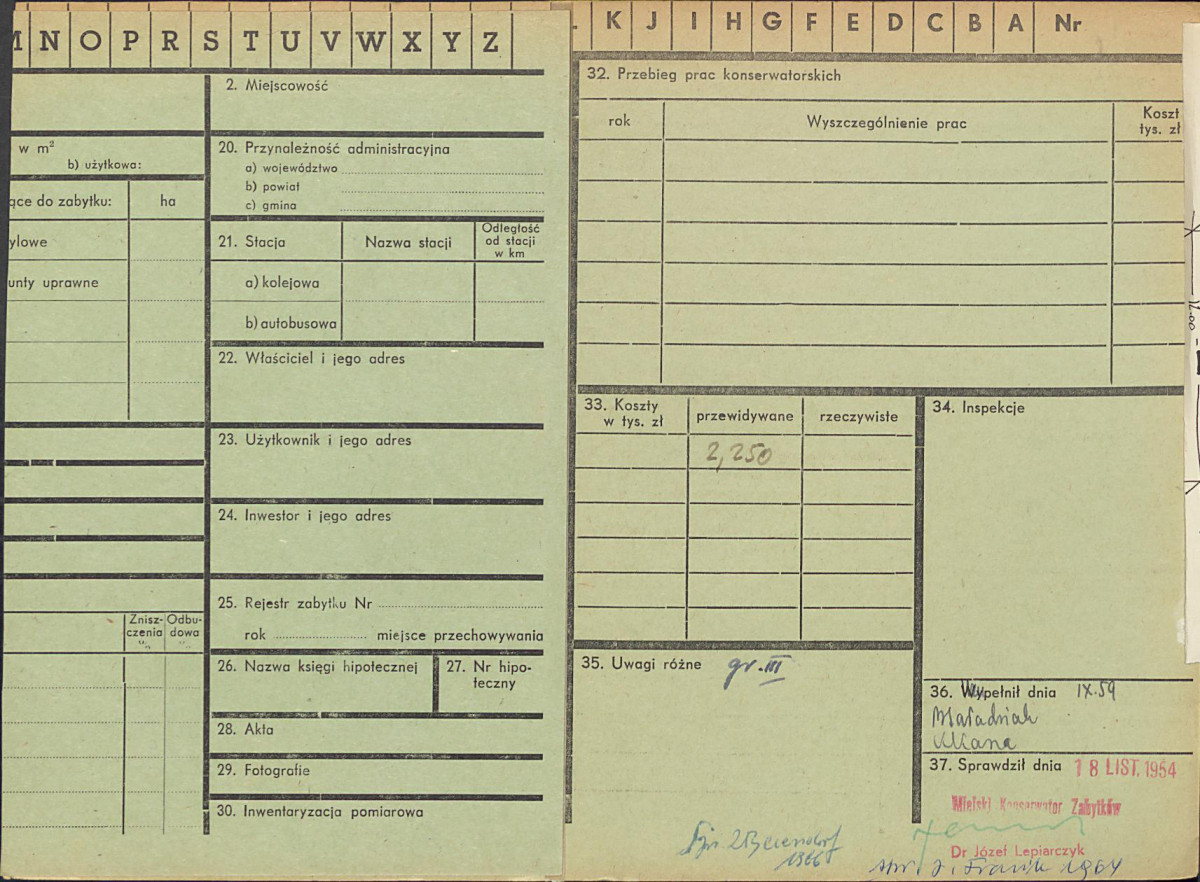 N O P R S T U V W X Y Z
2. Miejscowość
w m²
b) użytkowa:
20. Przynależność administracyjna
a) województwo
b) powiat
c) gmina
do zabytku: ha
21. Stacja Nazwa stacji Odległość
od stacji
w km
uprawne
a) kolejowa
b) autobusowa
22. Właściciel i jego adres
23. Użytkownik i jego adres
24. Inwestor i jego adres
25. Rejestr zabytku Nr
rok miejsce przechowywania
Znisz-
czenia
%
Odbu-
dowa
%
26. Nazwa księgi hipotecznej
27. Nr hipo-
teczny
28. Akta
29. Fotografie
30. Inwentaryzacja pomiarowa
K J I H G F E D C B A Nr
32. Przebieg prac konserwatorskich
rok Wyszczególnienie prac Koszt
tys. zł
33. Koszty
w tys. zł
przewidywane rzeczywiste
2,250
34. Inspekcje
35. Uwagi różne gr. III
36. Wypełnił dnia IX.59
37. Sprawdził dnia 18 LIST. 1954
Miejski Konserwator Zabytków
Dr Józef Lepiarczyk
1966
1964